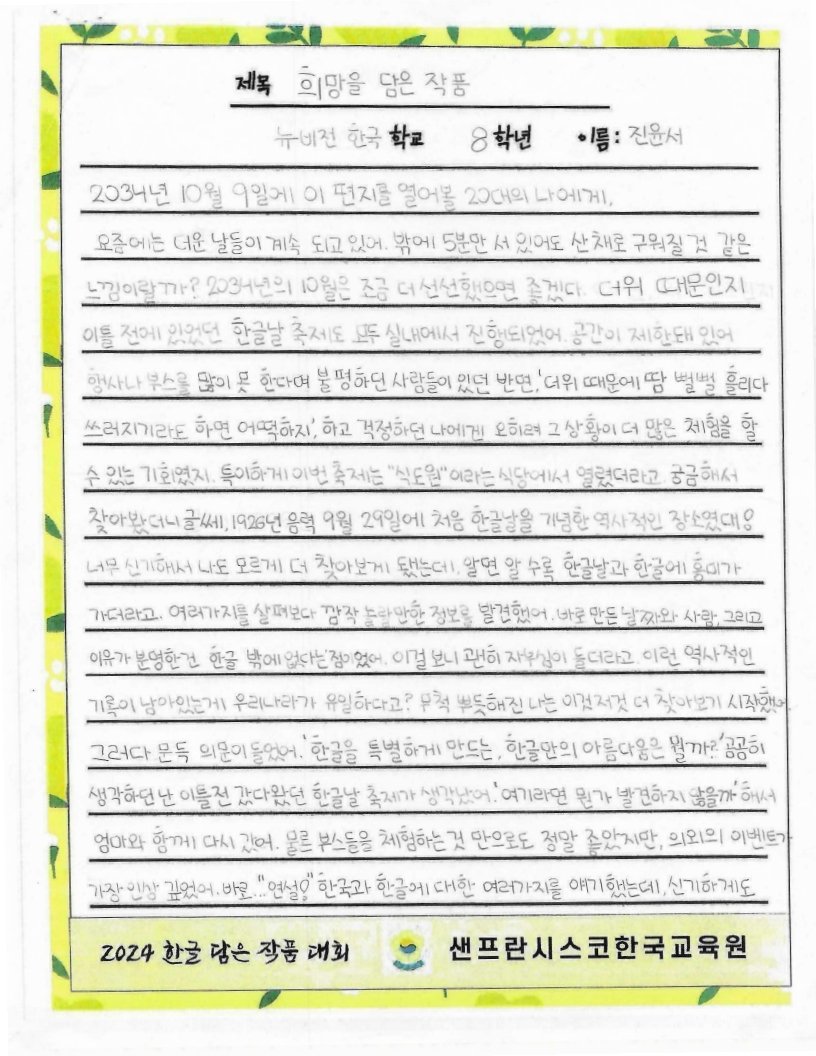 제목 희망을 담은 작품
뉴비전 한국 학교 8학년 이름: 진윤서
2034년 10월 9일에 이 편지를 열어볼 20대의 나에게,
요즘에는 더운 날들이 계속 되고 있어. 밖에 5분만 서 있어도 산채로 구워질 것 같은
느낌이랄까? 2034년의 10월은 조금 더 선선했으면 좋겠다. 더위 때문인지
이틀 전에 있었던 한글날 축제도 모두 실내에서 진행되었어. 공간이 제한돼 있어
행사나 부스를 많이 못 한다며 불평하던 사람들이 있던 반면, '더위 때문에 땀 뻘뻘 흘리다
쓰러지기라도 하면 어떡하지', 하고 걱정하던 나에겐 오히려 그 상황이 더 많은 체험을 할
수 있는 기회였지. 특이하게 이번 축제는 "식도원"이라는 식당에서 열렸더라고. 궁금해서
찾아봤더니 글쎄, 1926년 음력 9월 29일에 처음 한글날을 기념한 역사적인 장소였대!
너무 신기해서 나도 모르게 더 찾아보게 됐는데, 알면 알 수록 한글날과 한글에 흥미가
가더라고. 여러가지를 살펴보다 깜작 놀랄만한 정보를 발견했어. 바로 만든 날짜와 사람, 그리고
이유가 분명한건 한글 밖에 없다는 점이었어. 이걸 보니 괜히 자부심이 들더라고. 이런 역사적인
기록이 남아있는게 우리나라가 유일하다고? 무척 뿌듯해진 나는 이것저것 더 찾아보기 시작했어.
그러다 문득 의문이 들었어. '한글을 특별하게 만드는, 한글만의 아름다움은 뭘까?' 곰곰히
생각하던 난 이틀전 갔다왔던 한글날 축제가 생각났어. '여기라면 뭔가 발견하지 않을까' 해서
엄마와 함께 다시 갔어. 물론 부스들을 체험하는 것 만으로도 정말 좋았지만, 의외의 이벤트가
가장 인상 깊었어. 바로.. "연설!" 한국과 한글에 대한 여러가지를 얘기했는데, 신기하게도
2024 한글 담은 작품 대회 샌프란시스코한국교육원